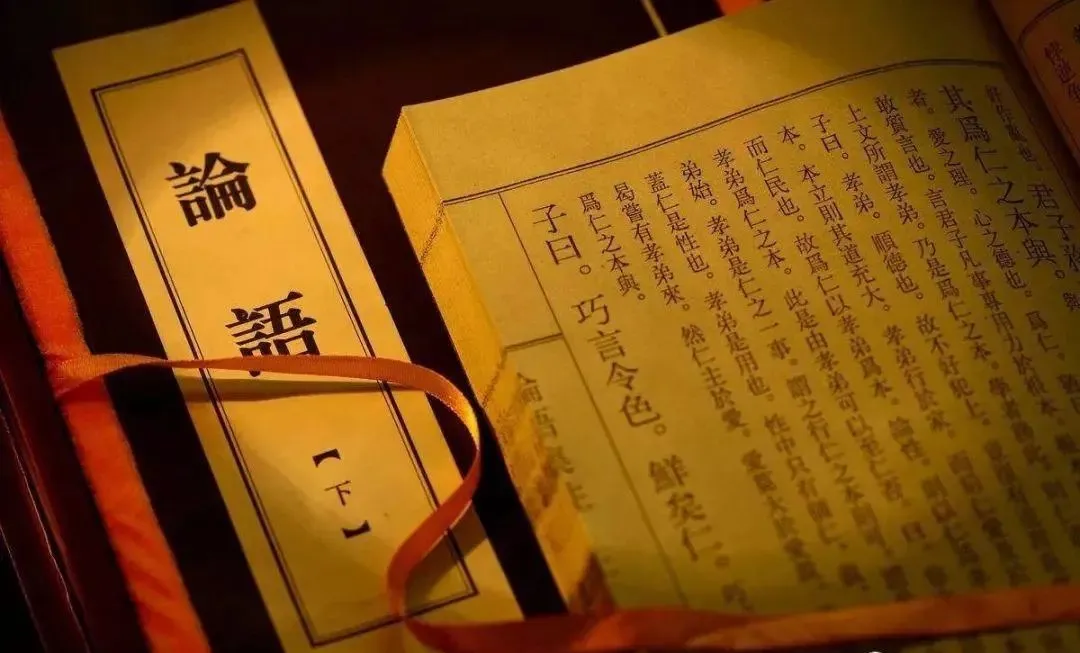 論語
【下】
君子務
其爲仁之本與。
者。愛之理。心之德也。爲仁。
敢質言也。言君子凡事專用力於根本。
上文所謂孝弟。乃是爲仁之本。學者務此。
子曰。孝弟。順德也。故不好犯上。
本。本立則其道充大。孝弟行於家。而後仁愛
而仁民也。故爲仁以孝弟爲本。論性。則以仁爲
孝弟爲仁之本。此是由孝弟可以至仁否。曰
弟始。孝弟是仁之一事。謂之行仁之本則可。
蓋仁是性也。孝弟是用也。性中只有箇仁。義
曷嘗有孝弟來。然仁主於愛。愛莫大於愛親
爲仁之本與。
子曰。巧言令色。鮮矣仁。巧
論語集註